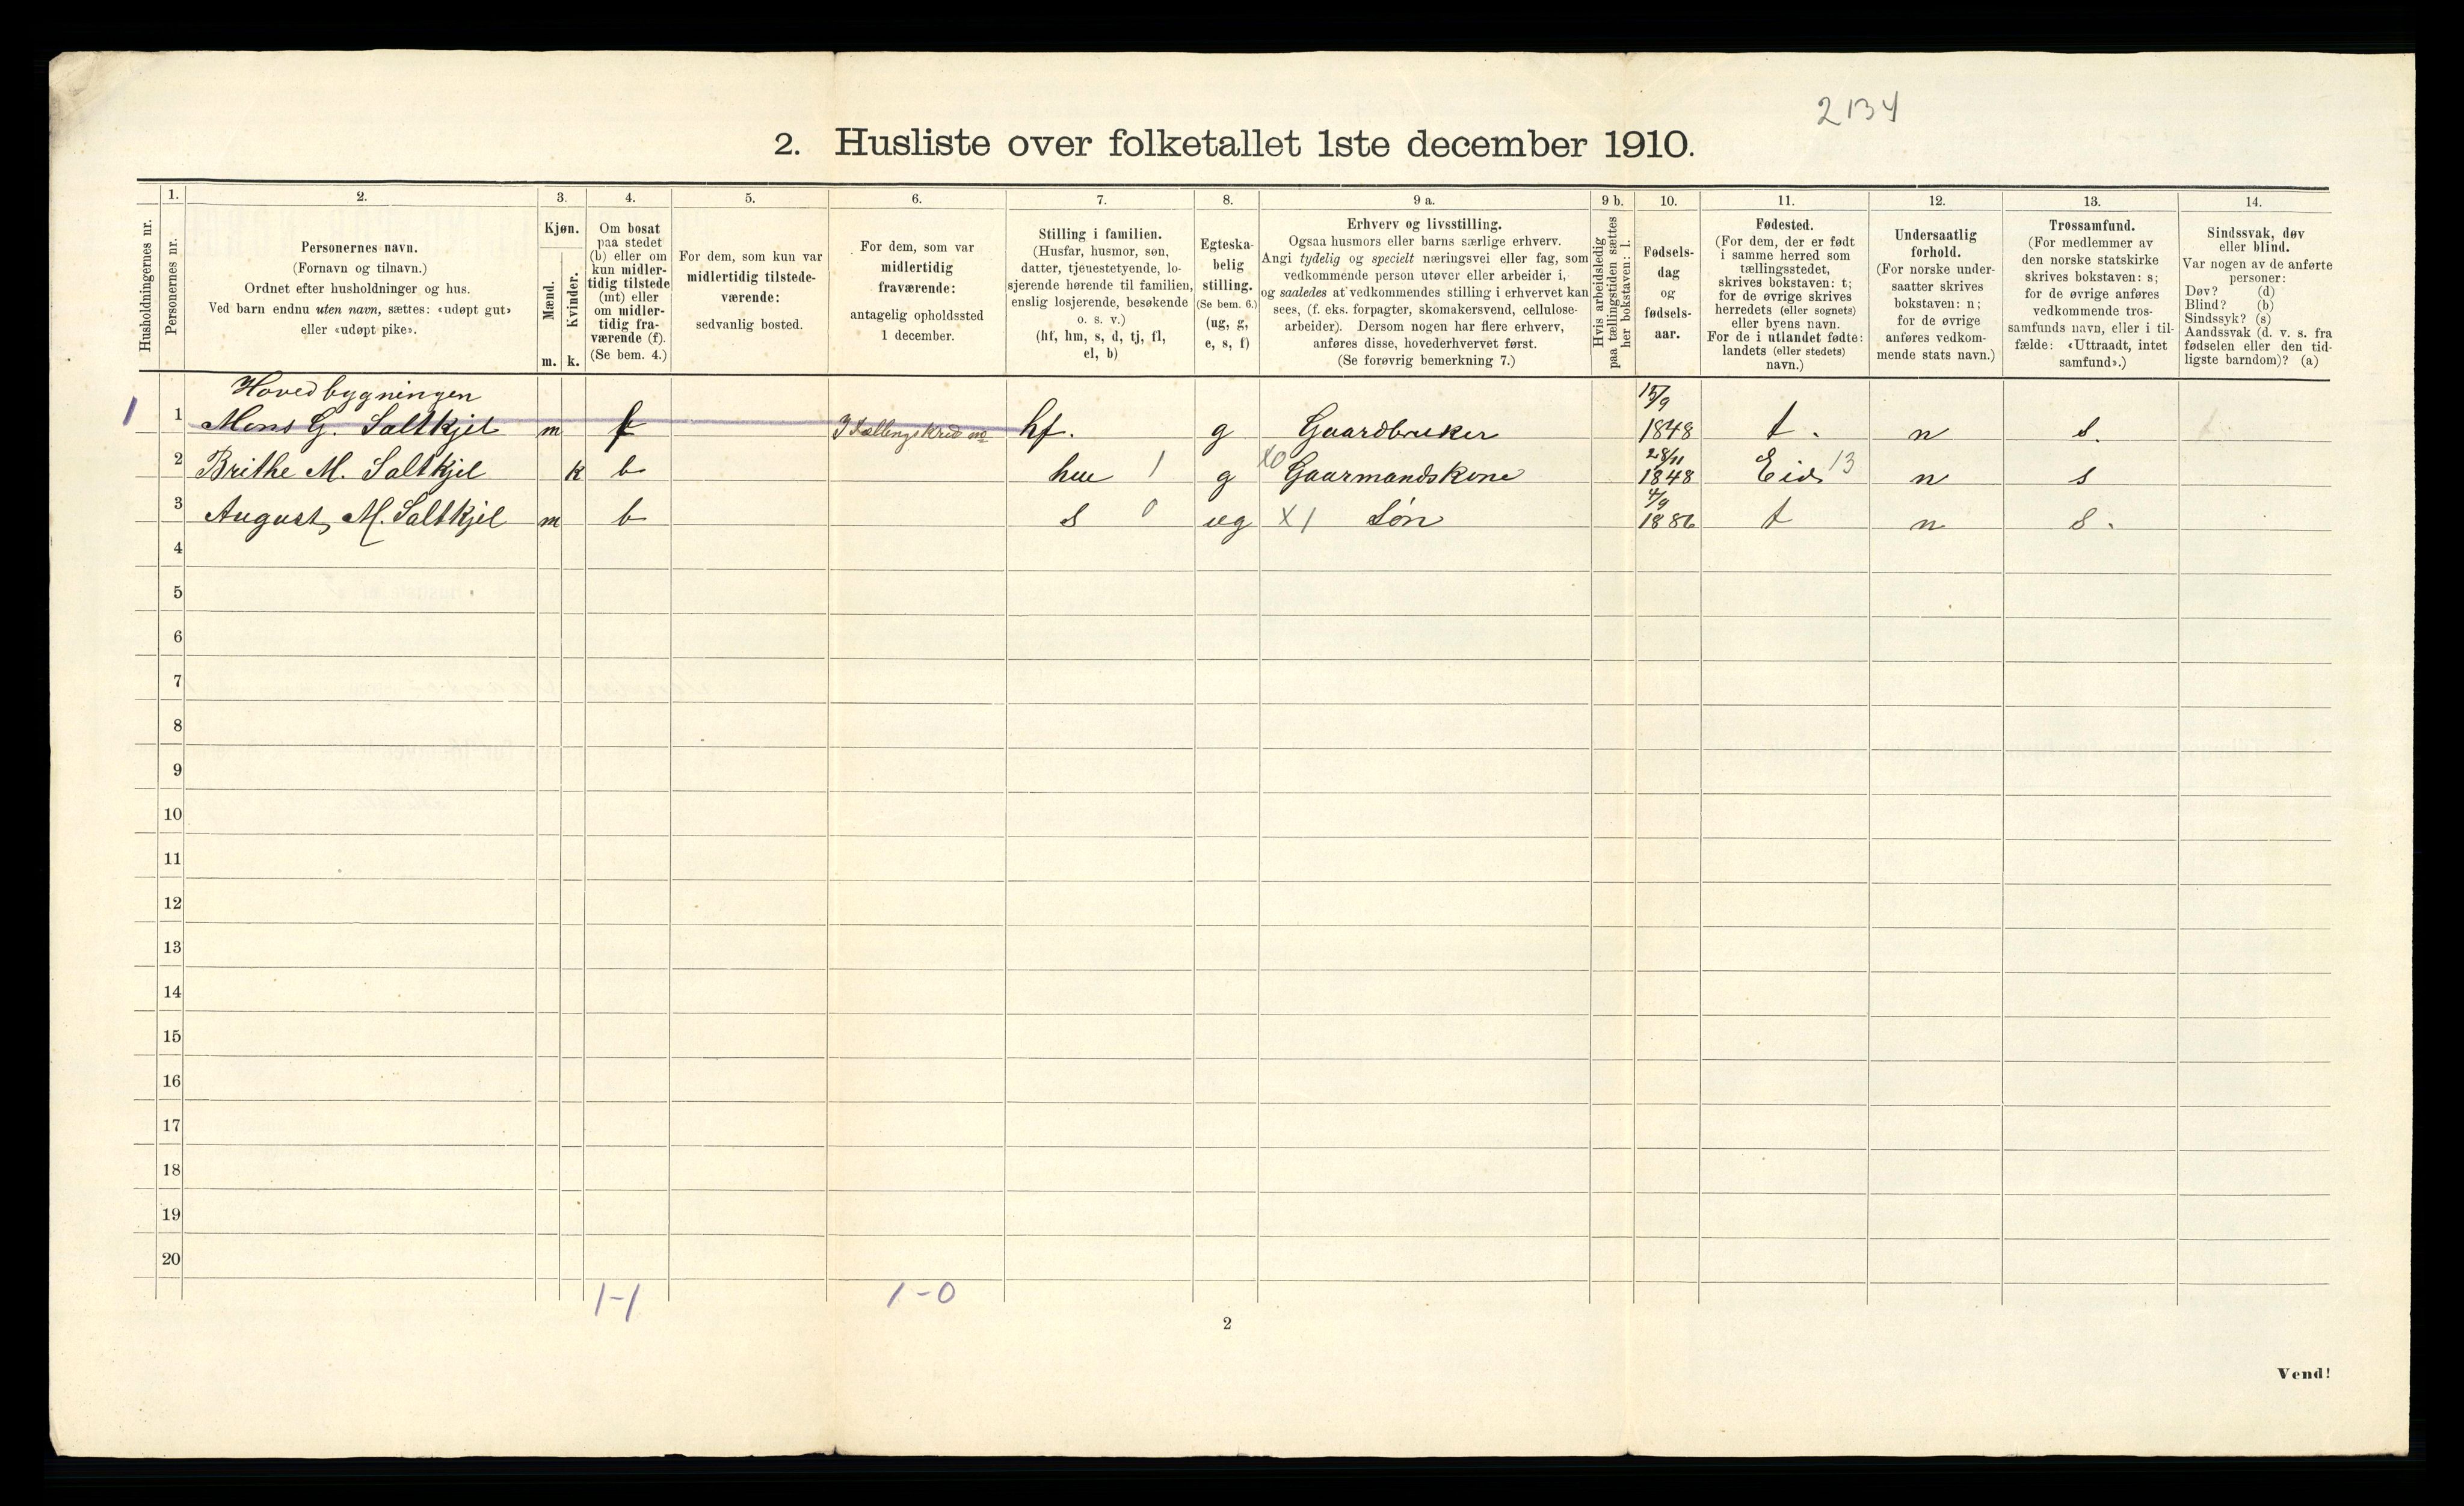 2134
2. Husliste over folketallet 1ste december 1910.
Husholdningernes nr.
1.
Personernes nr.
2.
Personernes navn.
(Fornavn og tilnavn.)
Ordnet efter husholdninger og hus.
Ved barn endnu uten navn, sættes: «udøpt gut»
eller «udøpt pike».
3.
Kjøn.
Mænd.
Kvinder.
m. k.
4.
Om bosat
paa stedet
(b) eller om
kun midler-
tidig tilstede
(mt) eller
om midler-
tidig fra-
værende (f).
(Se bem. 4.)
5.
For dem, som kun var
midlertidig tilstede-
værende:
sedvanlig bosted.
6.
For dem, som var
midlertidig
fraværende:
antagelig opholdssted
1 december.
7.
Stilling i familien.
(Husfar, husmor, søn,
datter, tjenestetyende, lo-
sjerende hørende til familien,
enslig losjerende, besøkende
o. s. v.)
(hf, hm, s, d, tj, fl,
el, b)
8.
Egteska-
belig
stilling.
(Se bem. 6.)
(ug, g,
e, s, f)
9 a.
Erhverv og livsstilling.
Ogsaa husmors eller barns særlige erhverv.
Angi tydelig og specielt næringsvei eller fag, som
vedkommende person utøver eller arbeider i,
og saaledes at vedkommendes stilling i erhvervet kan
sees, (f. eks. forpagter, skomakersvend, cellulose-
arbeider). Dersom nogen har flere erhverv,
anføres disse, hovederhvervet først.
(Se forøvrig bemerkning 7.)
9 b.
Hvis arbeidsledig
paa tællingstiden sættes
her bokstaven: l.
10.
Fødsels-
dag
og
fødsels-
aar.
11.
Fødested.
(For dem, der er født
i samme herred som
tællingsstedet,
skrives bokstaven: t;
for de øvrige skrives
herredets (eller sognets)
eller byens navn.
For de i utlandet fødte:
landets (eller stedets)
navn.)
12.
Undersaatlig
forhold.
(For norske under-
saatter skrives
bokstaven: n;
for de øvrige
anføres vedkom-
mende stats navn.)
13.
Trossamfund.
(For medlemmer av
den norske statskirke
skrives bokstaven: s;
for de øvrige anføres
vedkommende tros-
samfunds navn, eller i til-
fælde: «Uttraadt, intet
samfund».)
14.
Sindssvak, døv
eller blind.
Var nogen av de anførte
personer:
Døv? (d)
Blind? (b)
Sindssyk? (s)
Aandssvak (d. v. s. fra
fødselen eller den tid-
ligste barndom)? (a)
Hovedbygningen
1 1 Mons G. Saltkjel m f hf. g Gaardbruker 15/9 1848 t. n s.
2 Brithe M. Saltkjel k b hm 1 g X0 Gaarmandskone 28/11 1848 Eid 13 n s
3 August M. Saltkjel m b s 0 ug X1 Søn 4/9 1886 t n s.
4
5
6
7
8
9
10
11
12
13
14
15
16
17
18
19
20
1-1 1-0
2
Vend!